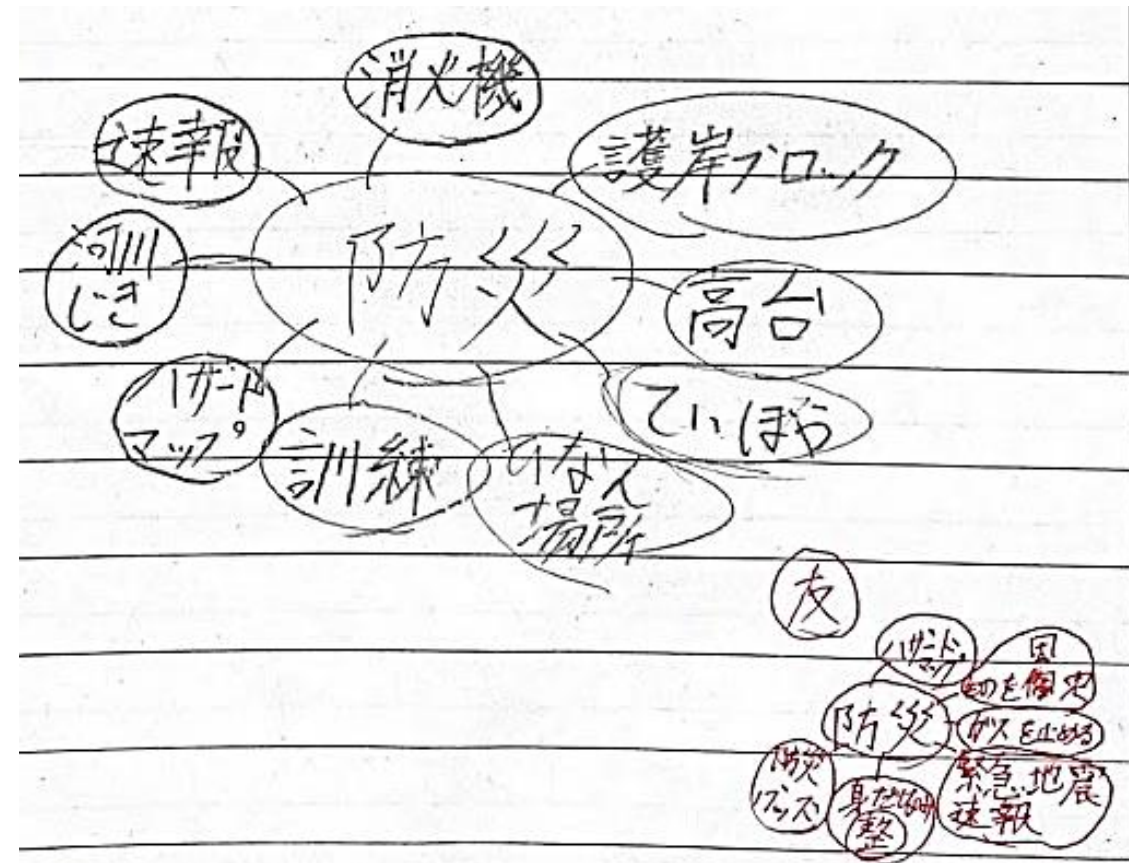 消火機
速報
護岸ブロック
防災
河川
じき
高台
ハザード
マップ
ていぼう
訓練
ひなん
場所
友
ハザード
マップ
防災
ガスを止める
防災
グッズ
緊急地震
速報
整